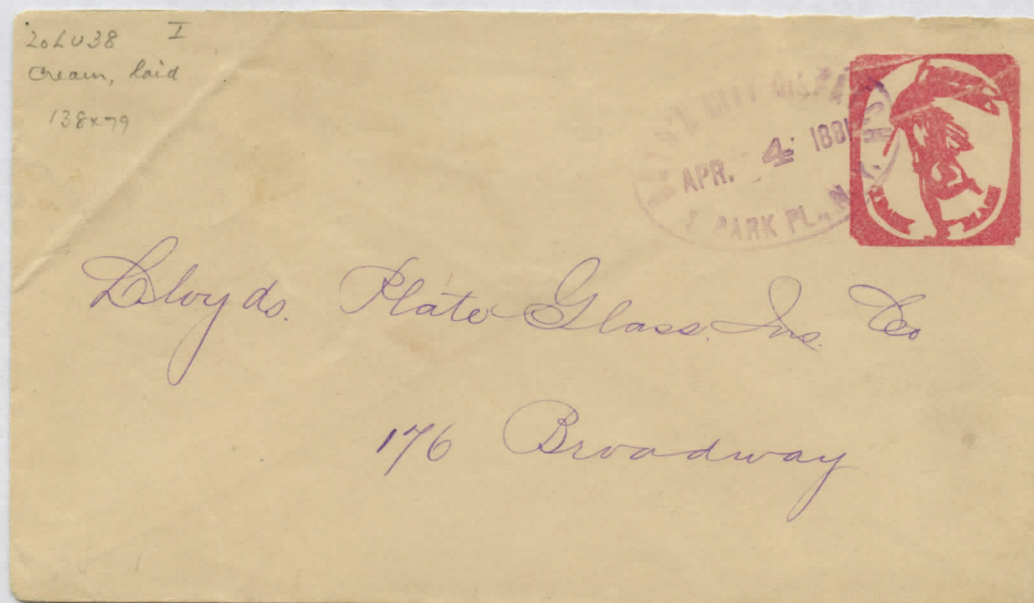 20LU38 I
Cream, laid
138x79
CITY DISPATCH
APR. 4 1881
PARK PL., N.Y.
PARK PLACE
Lloyds. Plate Glass. Ins. Co
176 Broadway